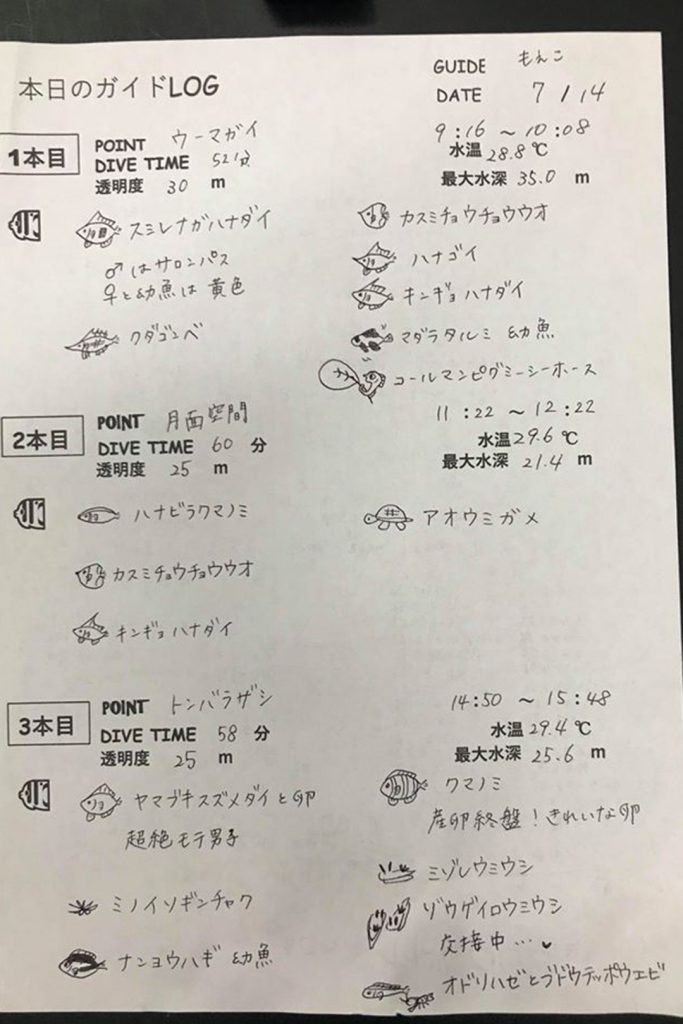 本日のガイドLOG
GUIDE もえこ
DATE 7/14
1本目
POINT ウーマガイ
DIVE TIME 52分
透明度 30 m
9:16 ～ 10:08
水温 28.8℃
最大水深 35.0 m
スミレナガハナダイ
♂はサロンパス
♀と幼魚は黄色
クダゴンベ
カスミチョウチョウウオ
ハナゴイ
キンギョハナダイ
マダラタルミ 幼魚
コールマンピグミーシーホース
2本目
POINT 月面空間
DIVE TIME 60 分
透明度 25 m
11:22 ～ 12:22
水温 29.6℃
最大水深 21.4 m
ハナビラクマノミ
カスミチョウチョウウオ
キンギョハナダイ
アオウミガメ
3本目
POINT トンバラザシ
DIVE TIME 58 分
透明度 25 m
14:50 ～ 15:48
水温 29.4℃
最大水深 25.6 m
ヤマブキスズメダイと卵
超絶モテ男子
ミノイソギンチャク
ナンヨウハギ 幼魚
クマノミ
産卵終盤！きれいな卵
ミゾレウミウシ
ゾウゲイロウミウシ
交接中…♥
オドリハゼとブドウテッポウエビ